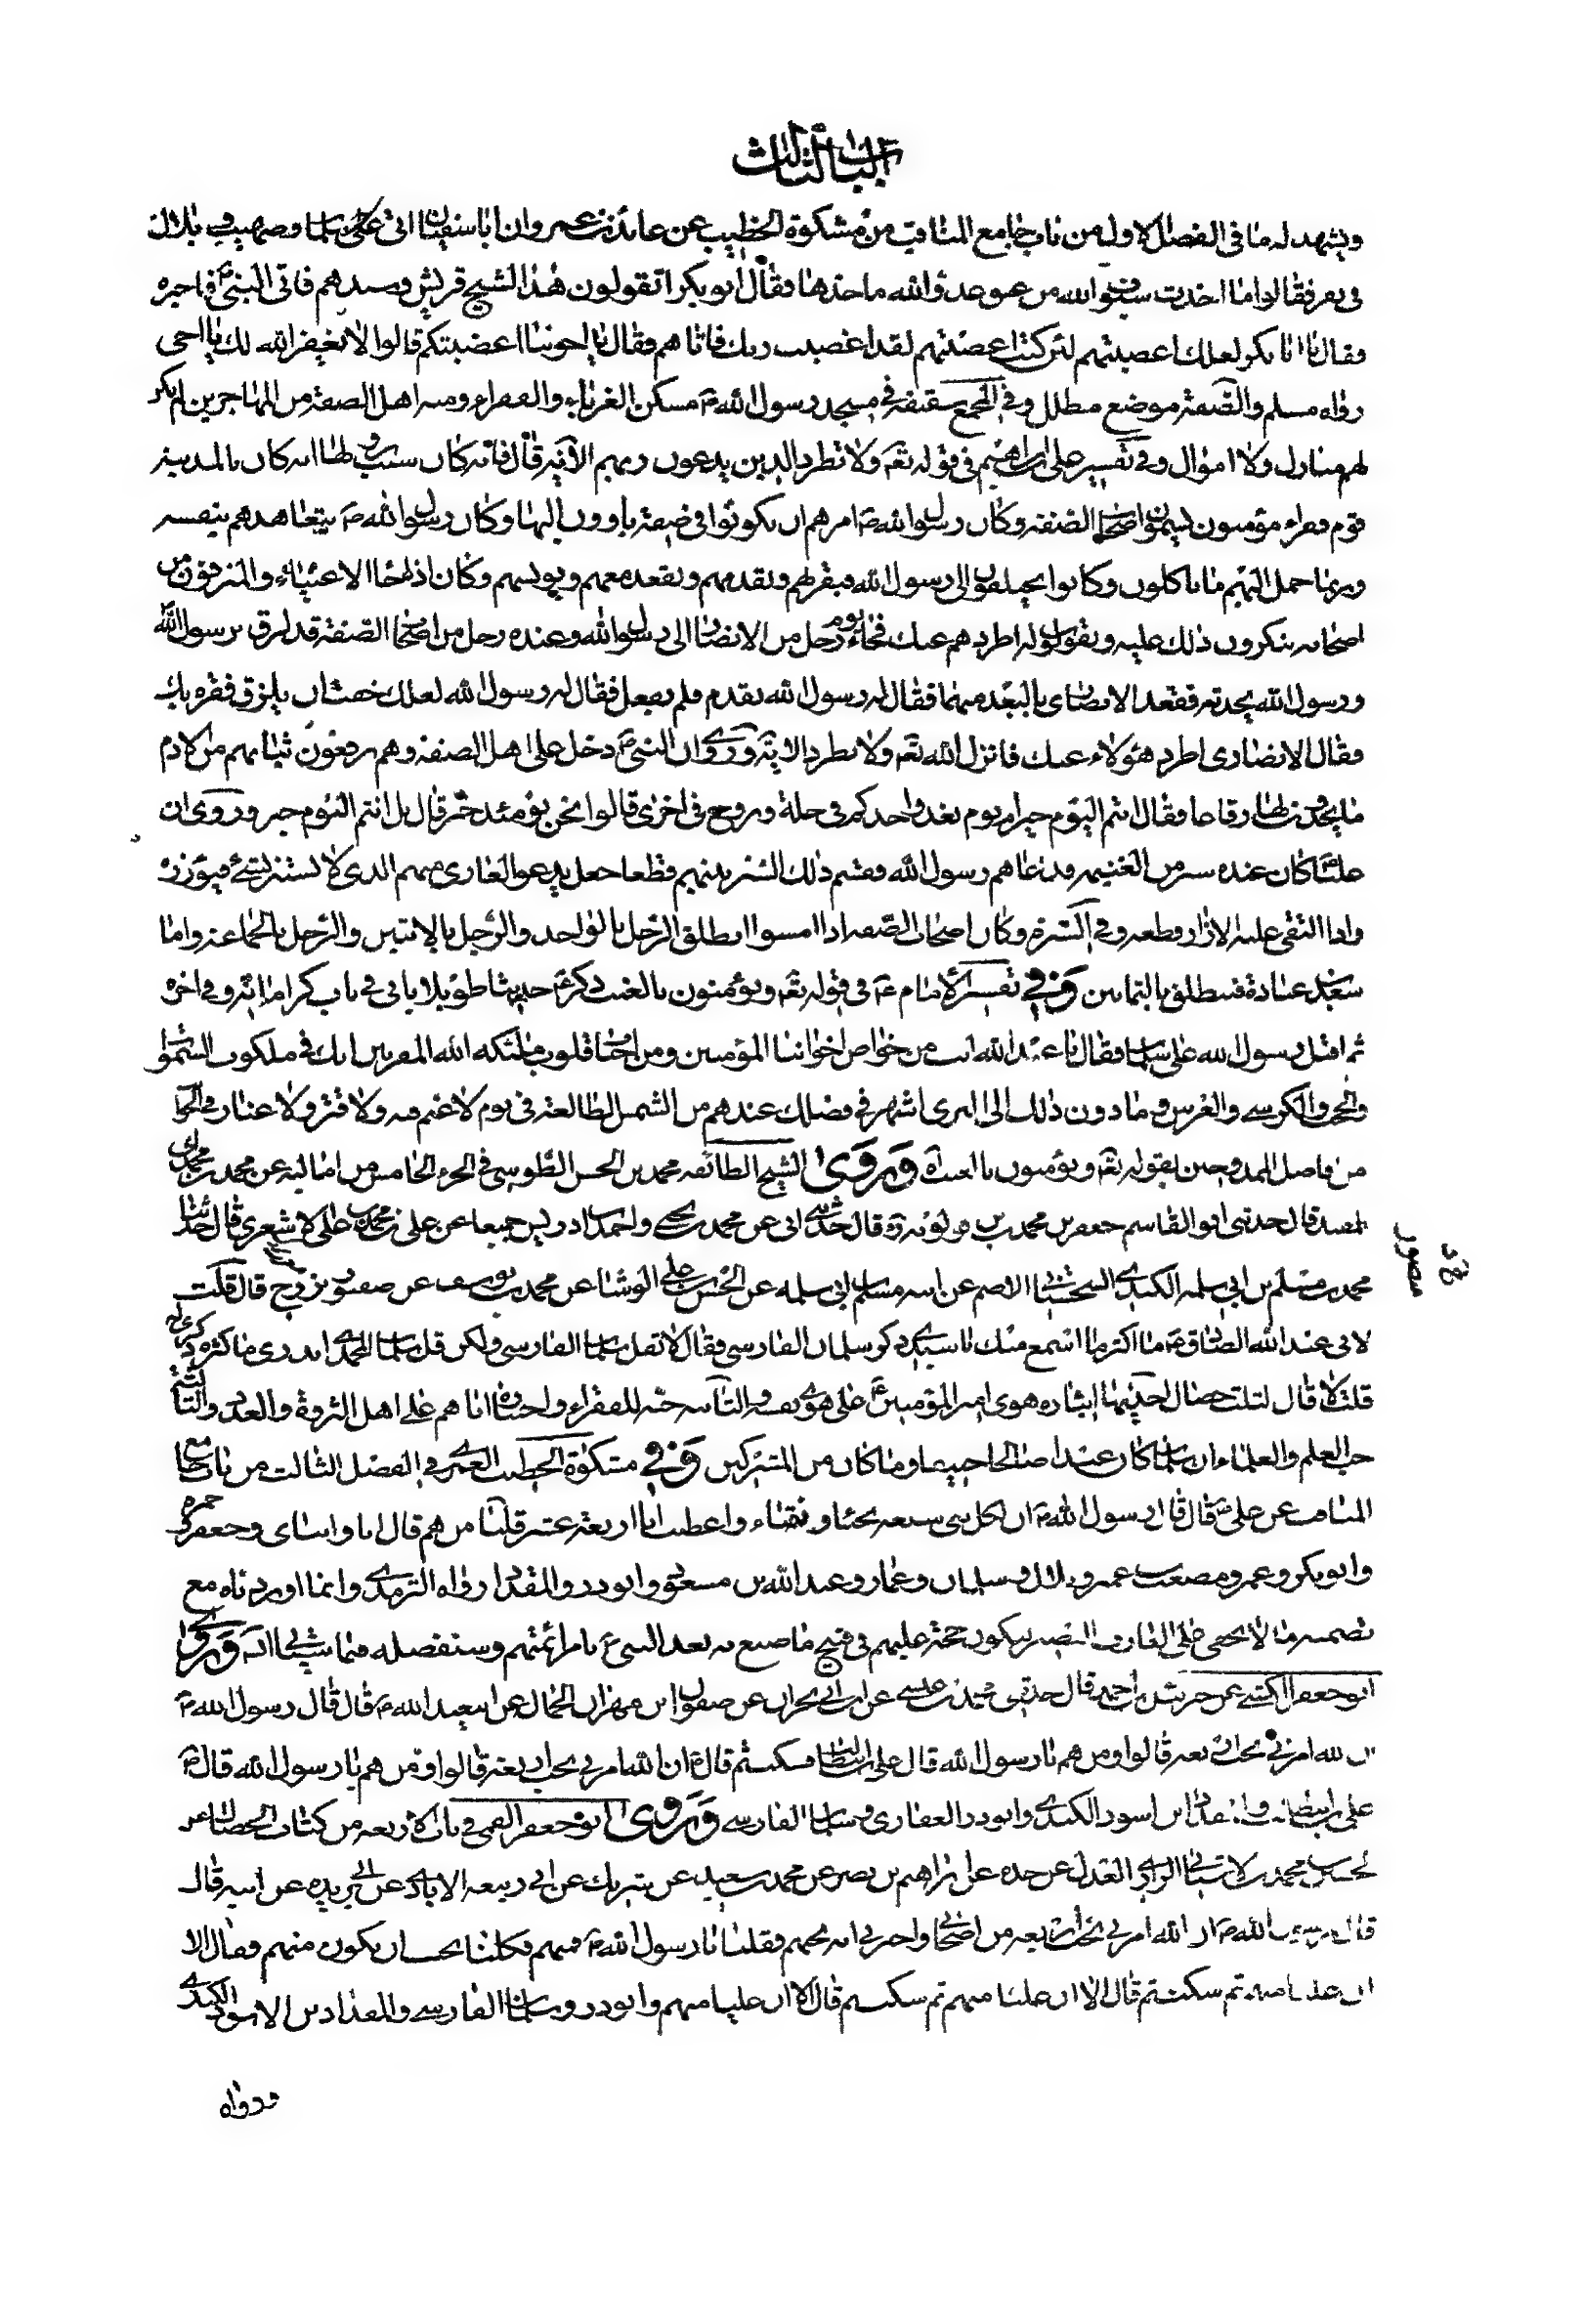 الباب الثالث
ويشهد له ما في الفصل الاول من باب جامع المناقب من مشكوة الخطيب عن عائذ بن عمرو ان ابا سفيان اتى على سلمان وصهيب وبلال
في نفر فقالوا ما اخذت سيوف الله من عنق عدو الله ماخذها فقال ابو بكر اتقولون هذا لشيخ قريش وسيدهم فاتى النبي ص فاخبره
فقال يا ابا بكر لعلك اغضبتهم لئن كنت اغضبتهم لقد اغضبت ربك فاتاهم فقال يا اخوتنا اغضبتكم قالوا لا يغفر الله لك يا اخي
رواه مسلم والصفة موضع مظلل وفي المجمع سقيفة في مسجد رسول الله ص مسكن الغرباء والفقراء ومنه اهل الصفة من المهاجرين لم يكن
لهم منازل ولا اموال وفي تفسير علي بن ابراهيم في قوله تعه ولا تطرد الذين يدعون ربهم الآية قال فانه كان سبب نزولها انه كان بالمدينة
قوم فقراء مؤمنون يسمون اصحاب الصفة وكان رسول الله ص امرهم ان يكونوا في صفة ياوون اليها وكان رسول الله ص يتعاهدهم بنفسه
وربما حمل اليهم ما ياكلون وكانوا يختلفون الى رسول الله فيقربهم ويقعد معهم ويونسهم وكان اذا جاء الاغنياء والمترفون من
اصحابه ينكرون ذلك عليه ويقولون له اطردهم عنك فجاء يوما رجل من الانصار الى رسول الله وعنده رجل من اصحاب الصفة قد لزق برسول الله
ورسول الله يحدثه فقعد الانصاري بالبعد منهما فقال له رسول الله تقدم فلم يفعل فقال له رسول الله لعلك خفت ان يلزق فقره بك
فقال الانصاري اطرد هؤلاء عنك فانزل الله تعه ولا تطرد الاية وروي ان النبي ص دخل على اهل الصفة وهم يرقعون ثيابهم من الادم
ما يجدون لها رقاعا فقال انتم اليوم خير ام يوم يغدو احدكم في حلة ويروح في اخرى قالوا نحن يومئذ خير قال بل انتم اليوم خير وروي ان
عليا كان عنده ستر من الغنيمة فدعاهم رسول الله وقسم ذلك الستر بينهم قطعا جعل يدعو العاري منهم الذي لا يستتر بشئ فيوزره
واذا التقى عليه الازار قطعه وفي السيرة وكان اصحاب الصفة اذا امسوا انطلق الرجل بالواحد والرجل بالاثنين والرجل بالجماعة واما
سعد بن عبادة فينطلق بالثمانين وفي تفسير الامام ع في قوله تعه ويؤمنون بالغيب ذكر ع حديثا طويلا ياتي في باب كراماته وفي اخره
ثم اقبل رسول الله على سلمان فقال يا عبد الله انت من خواص اخواننا المؤمنين ومن احباب قلوب ملئكة الله المقربين انك في ملكوت السموات
والحجب والكرسي والعرش وما دون ذلك الى الثرى اشهر في فضلك عندهم من الشمس الطالعة في يوم لا غيم فيه ولا قتر ولا غبار في الجو انت
من فاضل الممدوحين بقوله تعه ويؤمنون بالغيب اه وروى الشيخ الطائفه محمد بن الحسن الطوسي في الجزء الخامس من اماليه عن محمد بن محمد
المفيد قال حدثني ابو القاسم جعفر بن محمد بن قولويه ره قال حدثني ابي عن محمد بن يحيى واحمد بن ادريس جميعا عن علي بن محمد بن علي الاشعري قال حدثنا
محمد بن مسلم بن ابي سلمة الكندي السجستاني الاصم عن ابيه مسلم بن ابي سلمه عن الحسن بن علي الوشا عن محمد بن يوسف عن منصور بن بزرج قال قلت
لابي عبد الله الصادق ع ما اكثر ما اسمع منك يا سيدي ذكر سلمان الفارسي فقال لا تقل سلمان الفارسي ولكن قل سلمان المحمدي اتدري ما كثرة ذكري له
قلت لا قال لثلث خصال احديها ايثاره هوى امير المؤمنين ع على هوى نفسه والثانية حبه للفقراء واختياره اياهم على اهل الثروة والعدد والثالثة
حب العلم والعلماء ان سلمان كان عبدا صالحا حنيفا وما كان من المشركين وفي مشكوة الخطيب العمري في الفصل الثالث من باب جامع
المناقب عن علي ع قال قال رسول الله ص ان لكل نبي سبعة نجباء ونقباء واعطيت انا اربعة عشر قلنا من هم قال انا وابناي وجعفر وحمزه
وابو بكر وعمر ومصعب بن عمير وبلال وسلمان وعمار وعبد الله بن مسعود وابو ذر والمقداد رواه الترمذي وانما اوردناه مع
تضمنه ما لا يخفى على العارف البصير ليكون حجة عليهم في قبيح ما صنع به بعد النبي ص بامر ائمتهم وسنفصله فيما سياتي ان شاء الله وروى
قال قال رسول الله ص
ان الله امرني بحب اربعة قالوا ومن هم يا رسول الله قال علي بن ابيطالب ثم سكت ثم قال ان الله امرني بحب اربعة قالوا ومن هم يا رسول الله قال ص
علي بن ابيطالب والمقداد بن اسود الكندي وابو ذر الغفاري وسلمان الفارسي وروى ابو جعفر القمي في باب الاربعة من كتاب الخصال عن
عن جده عن ابراهيم بن نصر عن محمد بن سعيد عن شريك عن ابي ربيعة الايادي عن ابن بريده عن ابيه قال
قال رسول الله ص ان الله امرني بحب اربعة من اصحابي واخبرني انه يحبهم فقلنا يا رسول الله ص فمنهم فكلنا يحب ان يكون منهم فقال الا
ان عليا منهم ثم سكت ثم قال الا ان عليا منهم ثم سكت ثم قال الا ان عليا منهم وابو ذر وسلمان الفارسي والمقداد بن الاسود الكندي
منصور خ د
ورواه